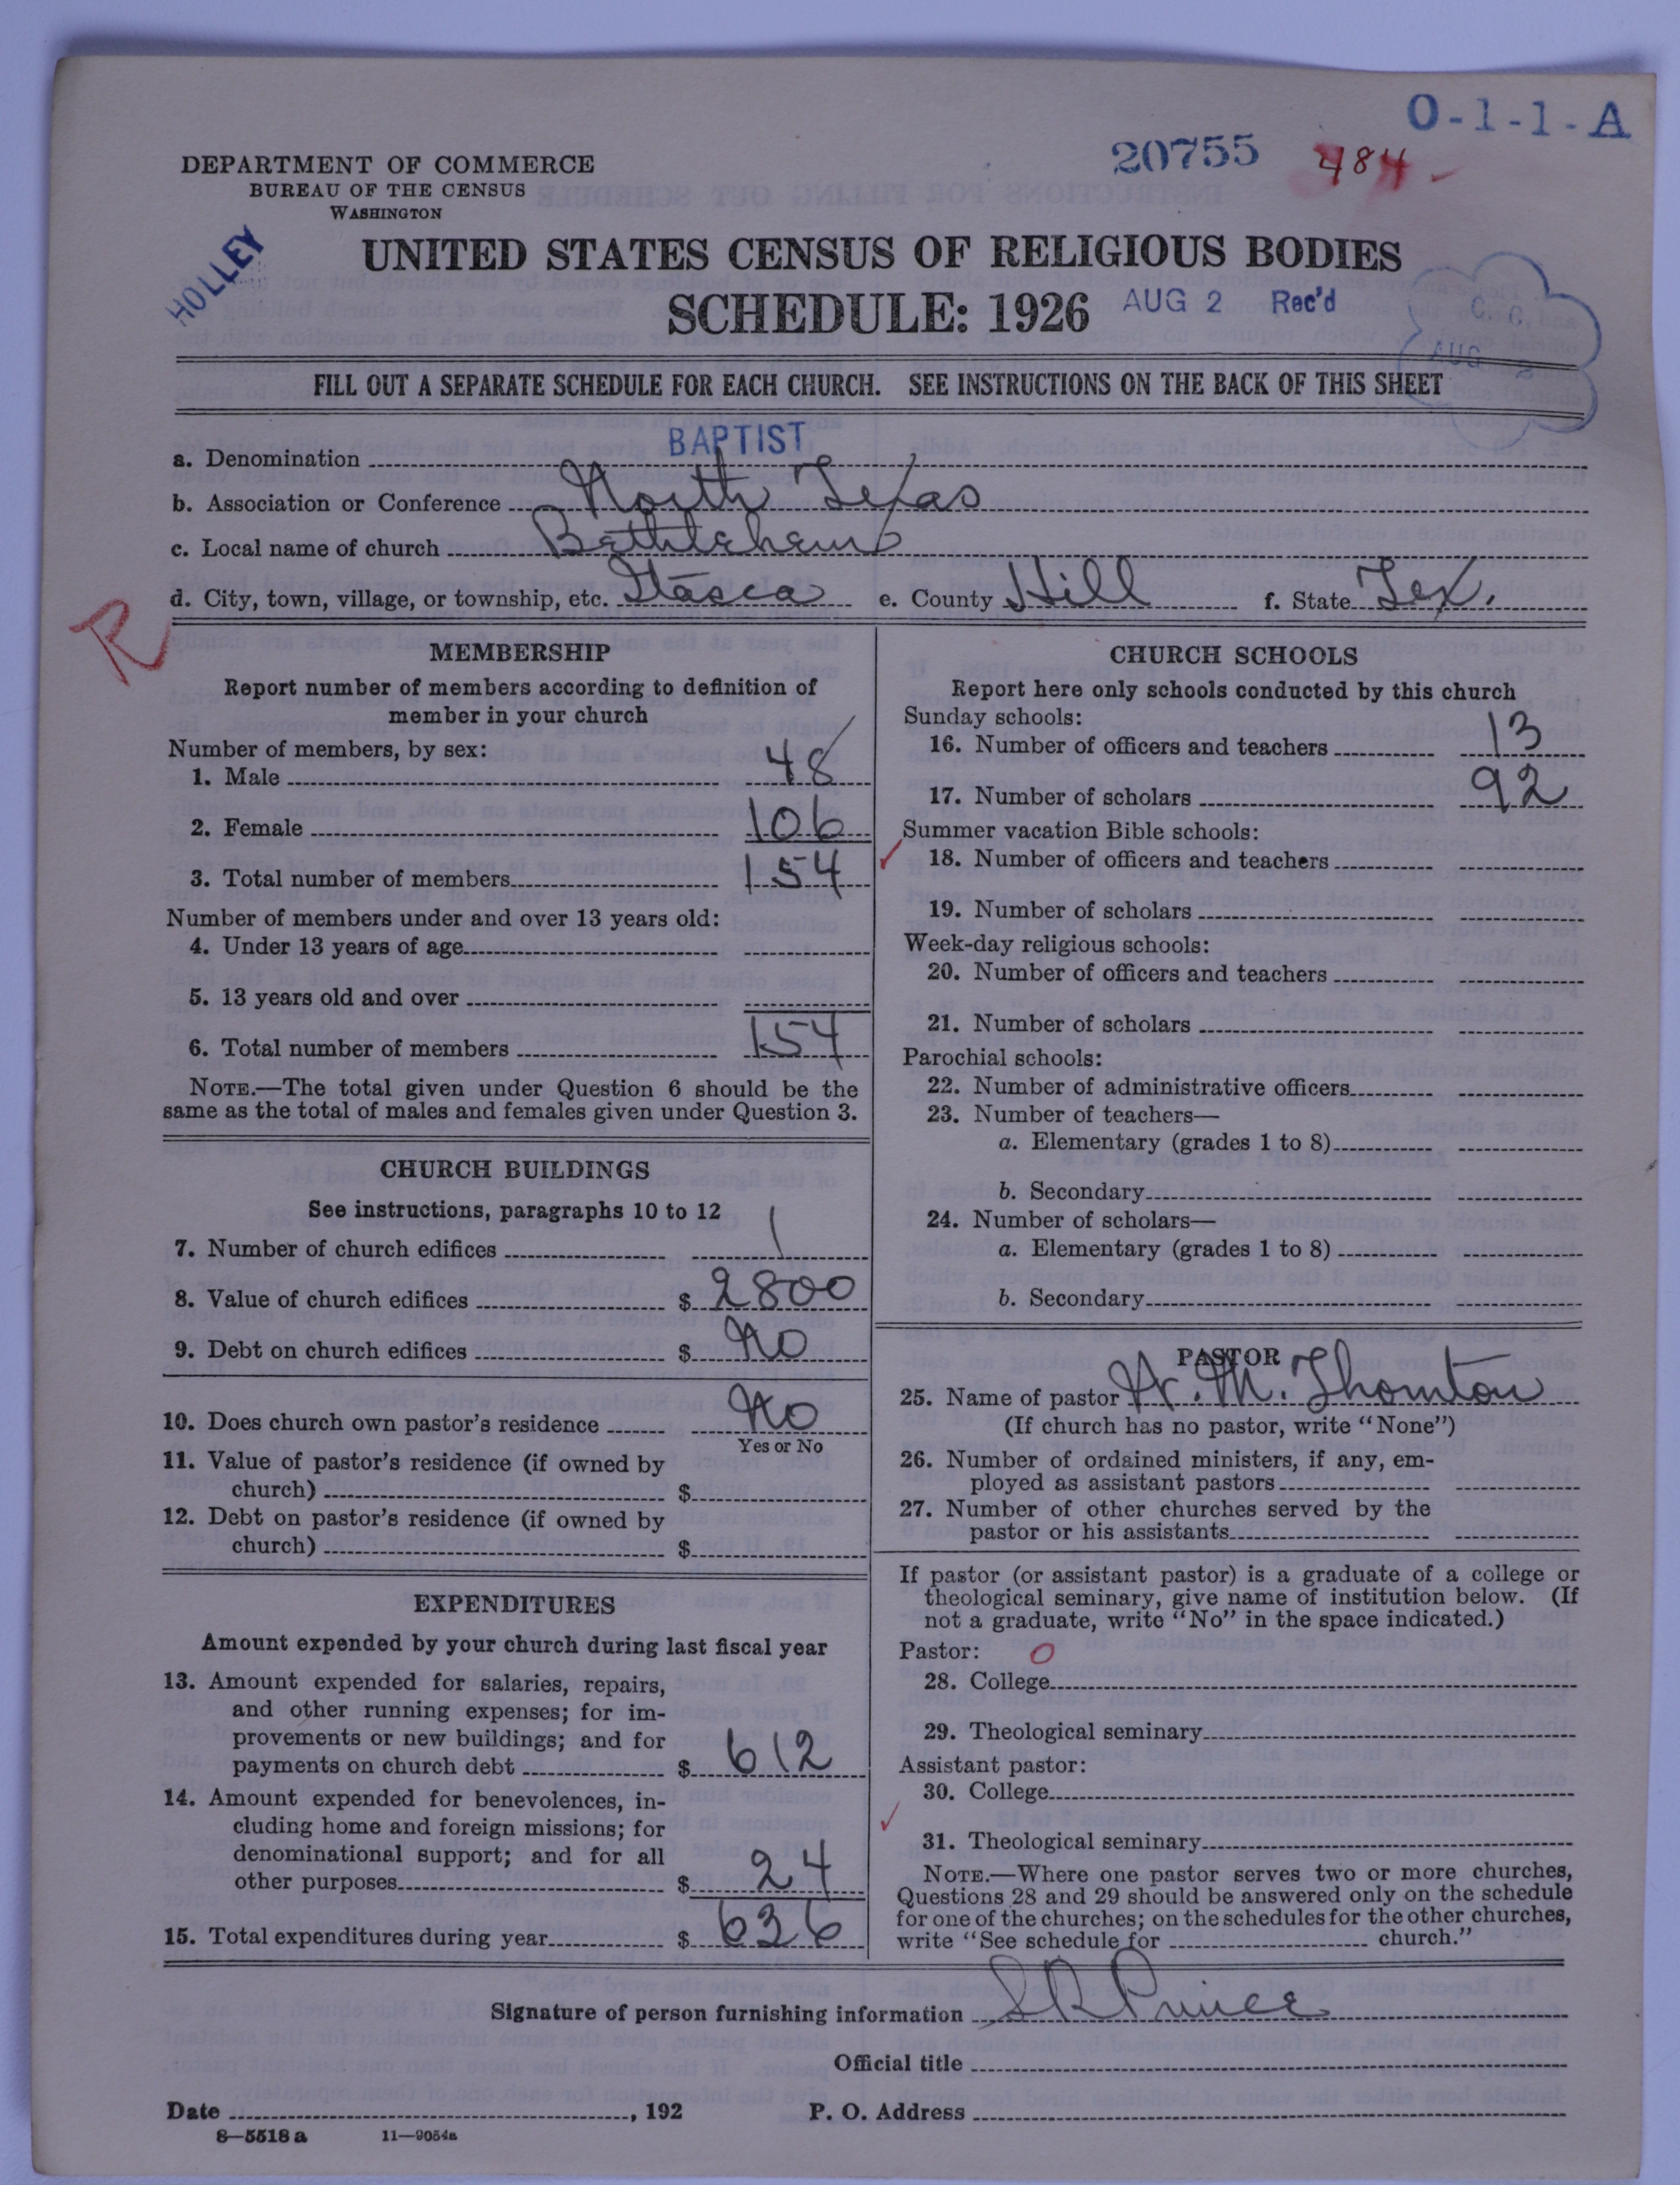 O-1-1-A
20755 484-
DEPARTMENT OF COMMERCE
BUREAU OF THE CENSUS
WASHINGTON
HOLLEY
UNITED STATES CENSUS OF RELIGIOUS BODIES
SCHEDULE: 1926 AUG 2 Rec'd
C. C.
AUG 2
FILL OUT A SEPARATE SCHEDULE FOR EACH CHURCH. SEE INSTRUCTIONS ON THE BACK OF THIS SHEET
a. Denomination BAPTIST
b. Association or Conference North Texas
c. Local name of church Bethlehem
d. City, town, village, or township, etc. Itasca e. County Hill f. State Tex.
R
MEMBERSHIP
Report number of members according to definition of
member in your church
Number of members, by sex:
1. Male 48
2. Female 106
3. Total number of members 154
Number of members under and over 13 years old:
4. Under 13 years of age
5. 13 years old and over
6. Total number of members 154
NOTE.—The total given under Question 6 should be the
same as the total of males and females given under Question 3.
CHURCH BUILDINGS
See instructions, paragraphs 10 to 12
7. Number of church edifices 1
8. Value of church edifices $ 2800
9. Debt on church edifices $ No
10. Does church own pastor's residence No
Yes or No
11. Value of pastor's residence (if owned by
church) $
12. Debt on pastor's residence (if owned by
church) $
EXPENDITURES
Amount expended by your church during last fiscal year
13. Amount expended for salaries, repairs,
and other running expenses; for im-
provements or new buildings; and for
payments on church debt $ 612
14. Amount expended for benevolences, in-
cluding home and foreign missions; for
denominational support; and for all
other purposes $ 24
15. Total expenditures during year $ 636
CHURCH SCHOOLS
Report here only schools conducted by this church
Sunday schools:
16. Number of officers and teachers 13
17. Number of scholars 92
Summer vacation Bible schools:
18. Number of officers and teachers
19. Number of scholars
Week-day religious schools:
20. Number of officers and teachers
21. Number of scholars
Parochial schools:
22. Number of administrative officers
23. Number of teachers—
a. Elementary (grades 1 to 8)
b. Secondary
24. Number of scholars—
a. Elementary (grades 1 to 8)
b. Secondary
PASTOR
25. Name of pastor M. Thornton
(If church has no pastor, write "None")
26. Number of ordained ministers, if any, em-
ployed as assistant pastors
27. Number of other churches served by the
pastor or his assistants
If pastor (or assistant pastor) is a graduate of a college or
theological seminary, give name of institution below. (If
not a graduate, write "No" in the space indicated.)
Pastor: O
28. College
29. Theological seminary
Assistant pastor:
30. College
31. Theological seminary
NOTE.—Where one pastor serves two or more churches,
Questions 28 and 29 should be answered only on the schedule
for one of the churches; on the schedules for the other churches,
write "See schedule for church."
Signature of person furnishing information S R Prince
Official title
Date , 192 P. O. Address
8—5518 a 11—9054a